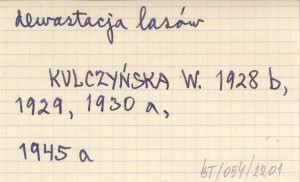 dewastacja lasów
KULCZYŃSKA W. 1928 b,
1929, 1930 a,
1945 a
BT/054/2201